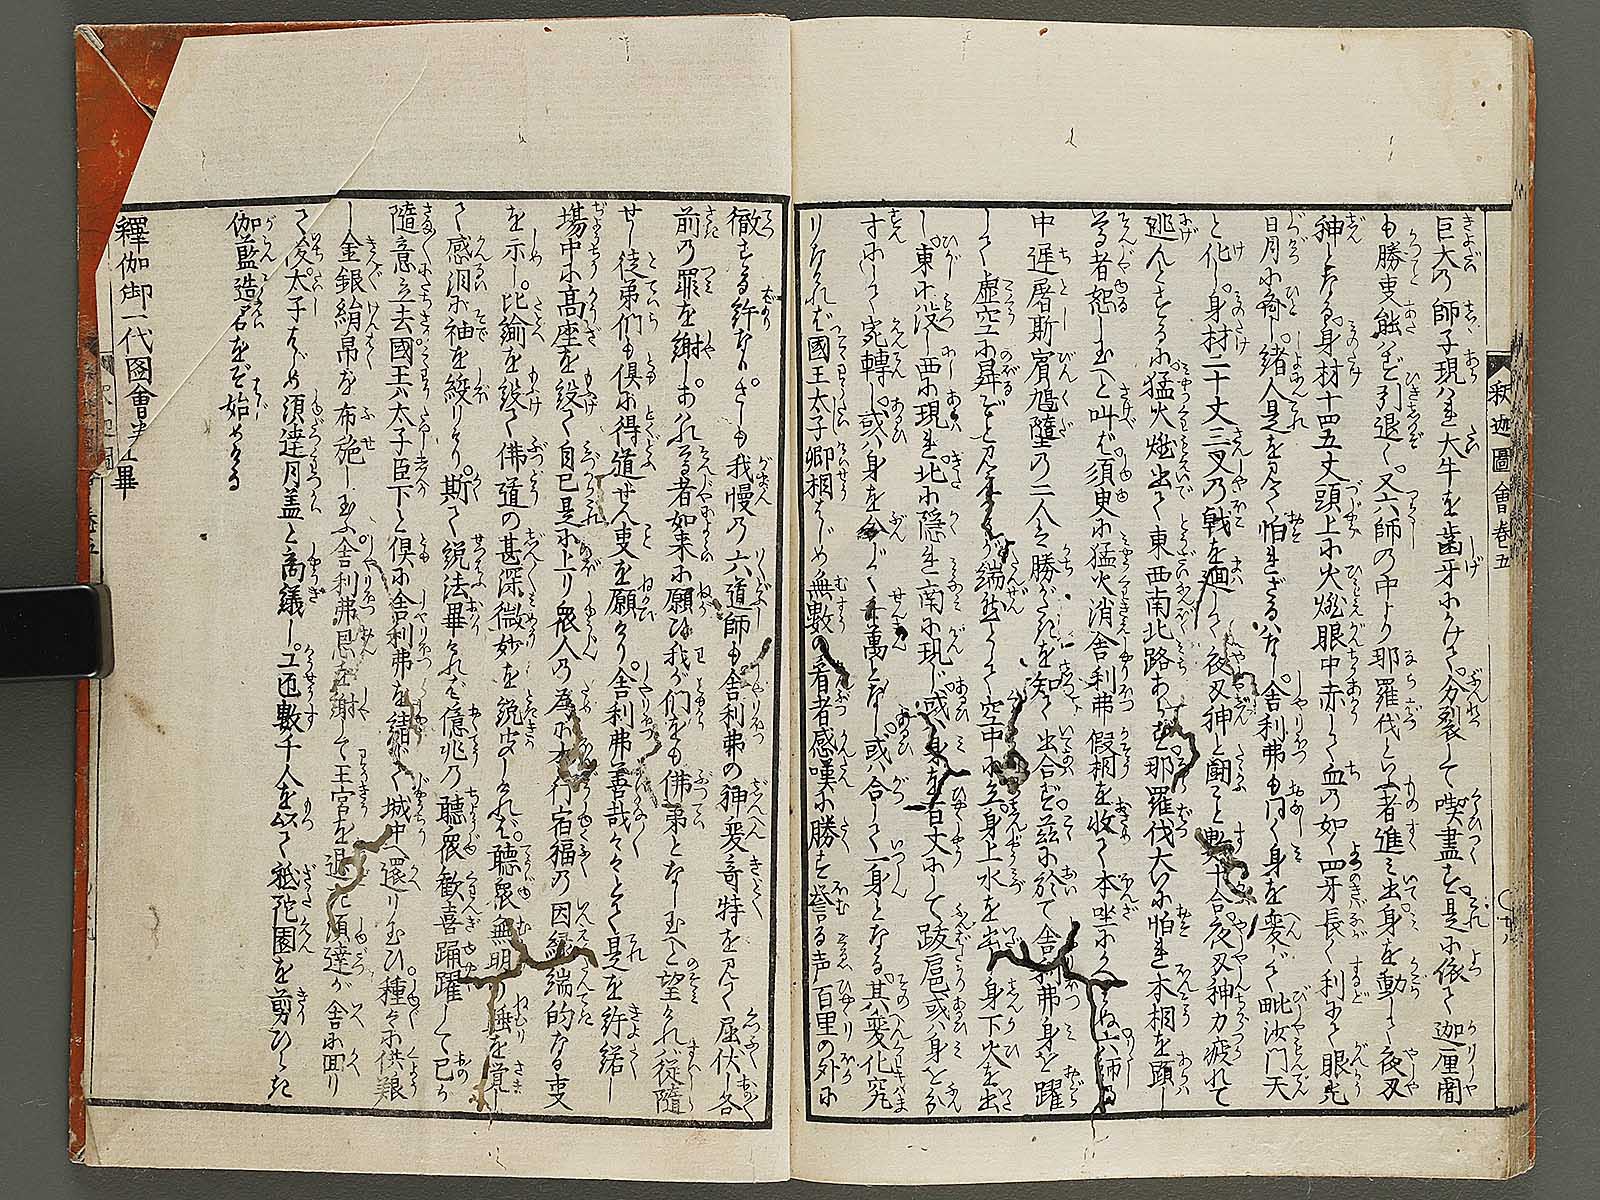 釈迦圖會卷五
巨大の師子現はれ大牛を歯牙にかけて分裂して喫盡す是に依て迦厘闍
も勝事能はず引退く又六師の中より耶羅伐といふ者進み出身を動して夜叉
神となる身材十四五丈頭上に火燃眼中赤しく血の如く四牙長く利にして眼光
日月に斉し諸人是を見て怕れざるはなし舎利弗も同く身を変じて毗沙門天
と化し身材二十丈三叉の戟を廻して夜叉神と闘こと数十合夜叉神力疲れて
逃んとするに猛火燃出て東西南北路あらず那羅伐大に怕れ本相を顕し
尊者恕し玉へと叫ば須臾に猛火消舎利弗假相を收て本坐にかへる
中遅屠斯賓鳩墮の二人は勝がたきを知て出合ず茲に於て舎利弗身を躍
して虚空に昇
空中に立身上水を出し身下火を出
し東に没し西に現れ北に隠れ南に現じ或は身を百丈にして跋扈或は身を
寸にして宛轉し或は身を分じて千萬となし或は合して一身となる其変化究
りなければ國王太子卿相はじめ無數の看者感嘆に勝ず誉る声百里の外に
徹する許なりさしも我慢の六道師も舎利弗の神変奇特を見て屈伏し各
前の罪を謝しあはれ尊者如来に願ひ我が們をも佛弟となし玉へと望ければ従隨
せし徒弟們も倶に得道せん事を願けり舎利弗善哉々々とて是を許諾し
場中に高座を設て自己是に上り衆人の為に
行宿福の因縁端的なる事
を示し比喩を設て佛道の甚深微妙を説
しければ聴衆無明
睡を覚し
て感涙に袖を絞りけり斯て説法畢ければ億兆の聴衆歓喜踊躍して己が
隨意立去國王太子臣下と倶に舎利弗を
て城中へ還り玉ひ種々に供養
し金銀絹帛を布施し玉ふ舎利弗恩を謝して王宮を退
須達が舎に回り
て後太子はじめ須達月盖と商議し工匠數千人を以て祇陀園を剪ひらき
伽藍造名をぞ始めける
釋伽御一代図會
畢